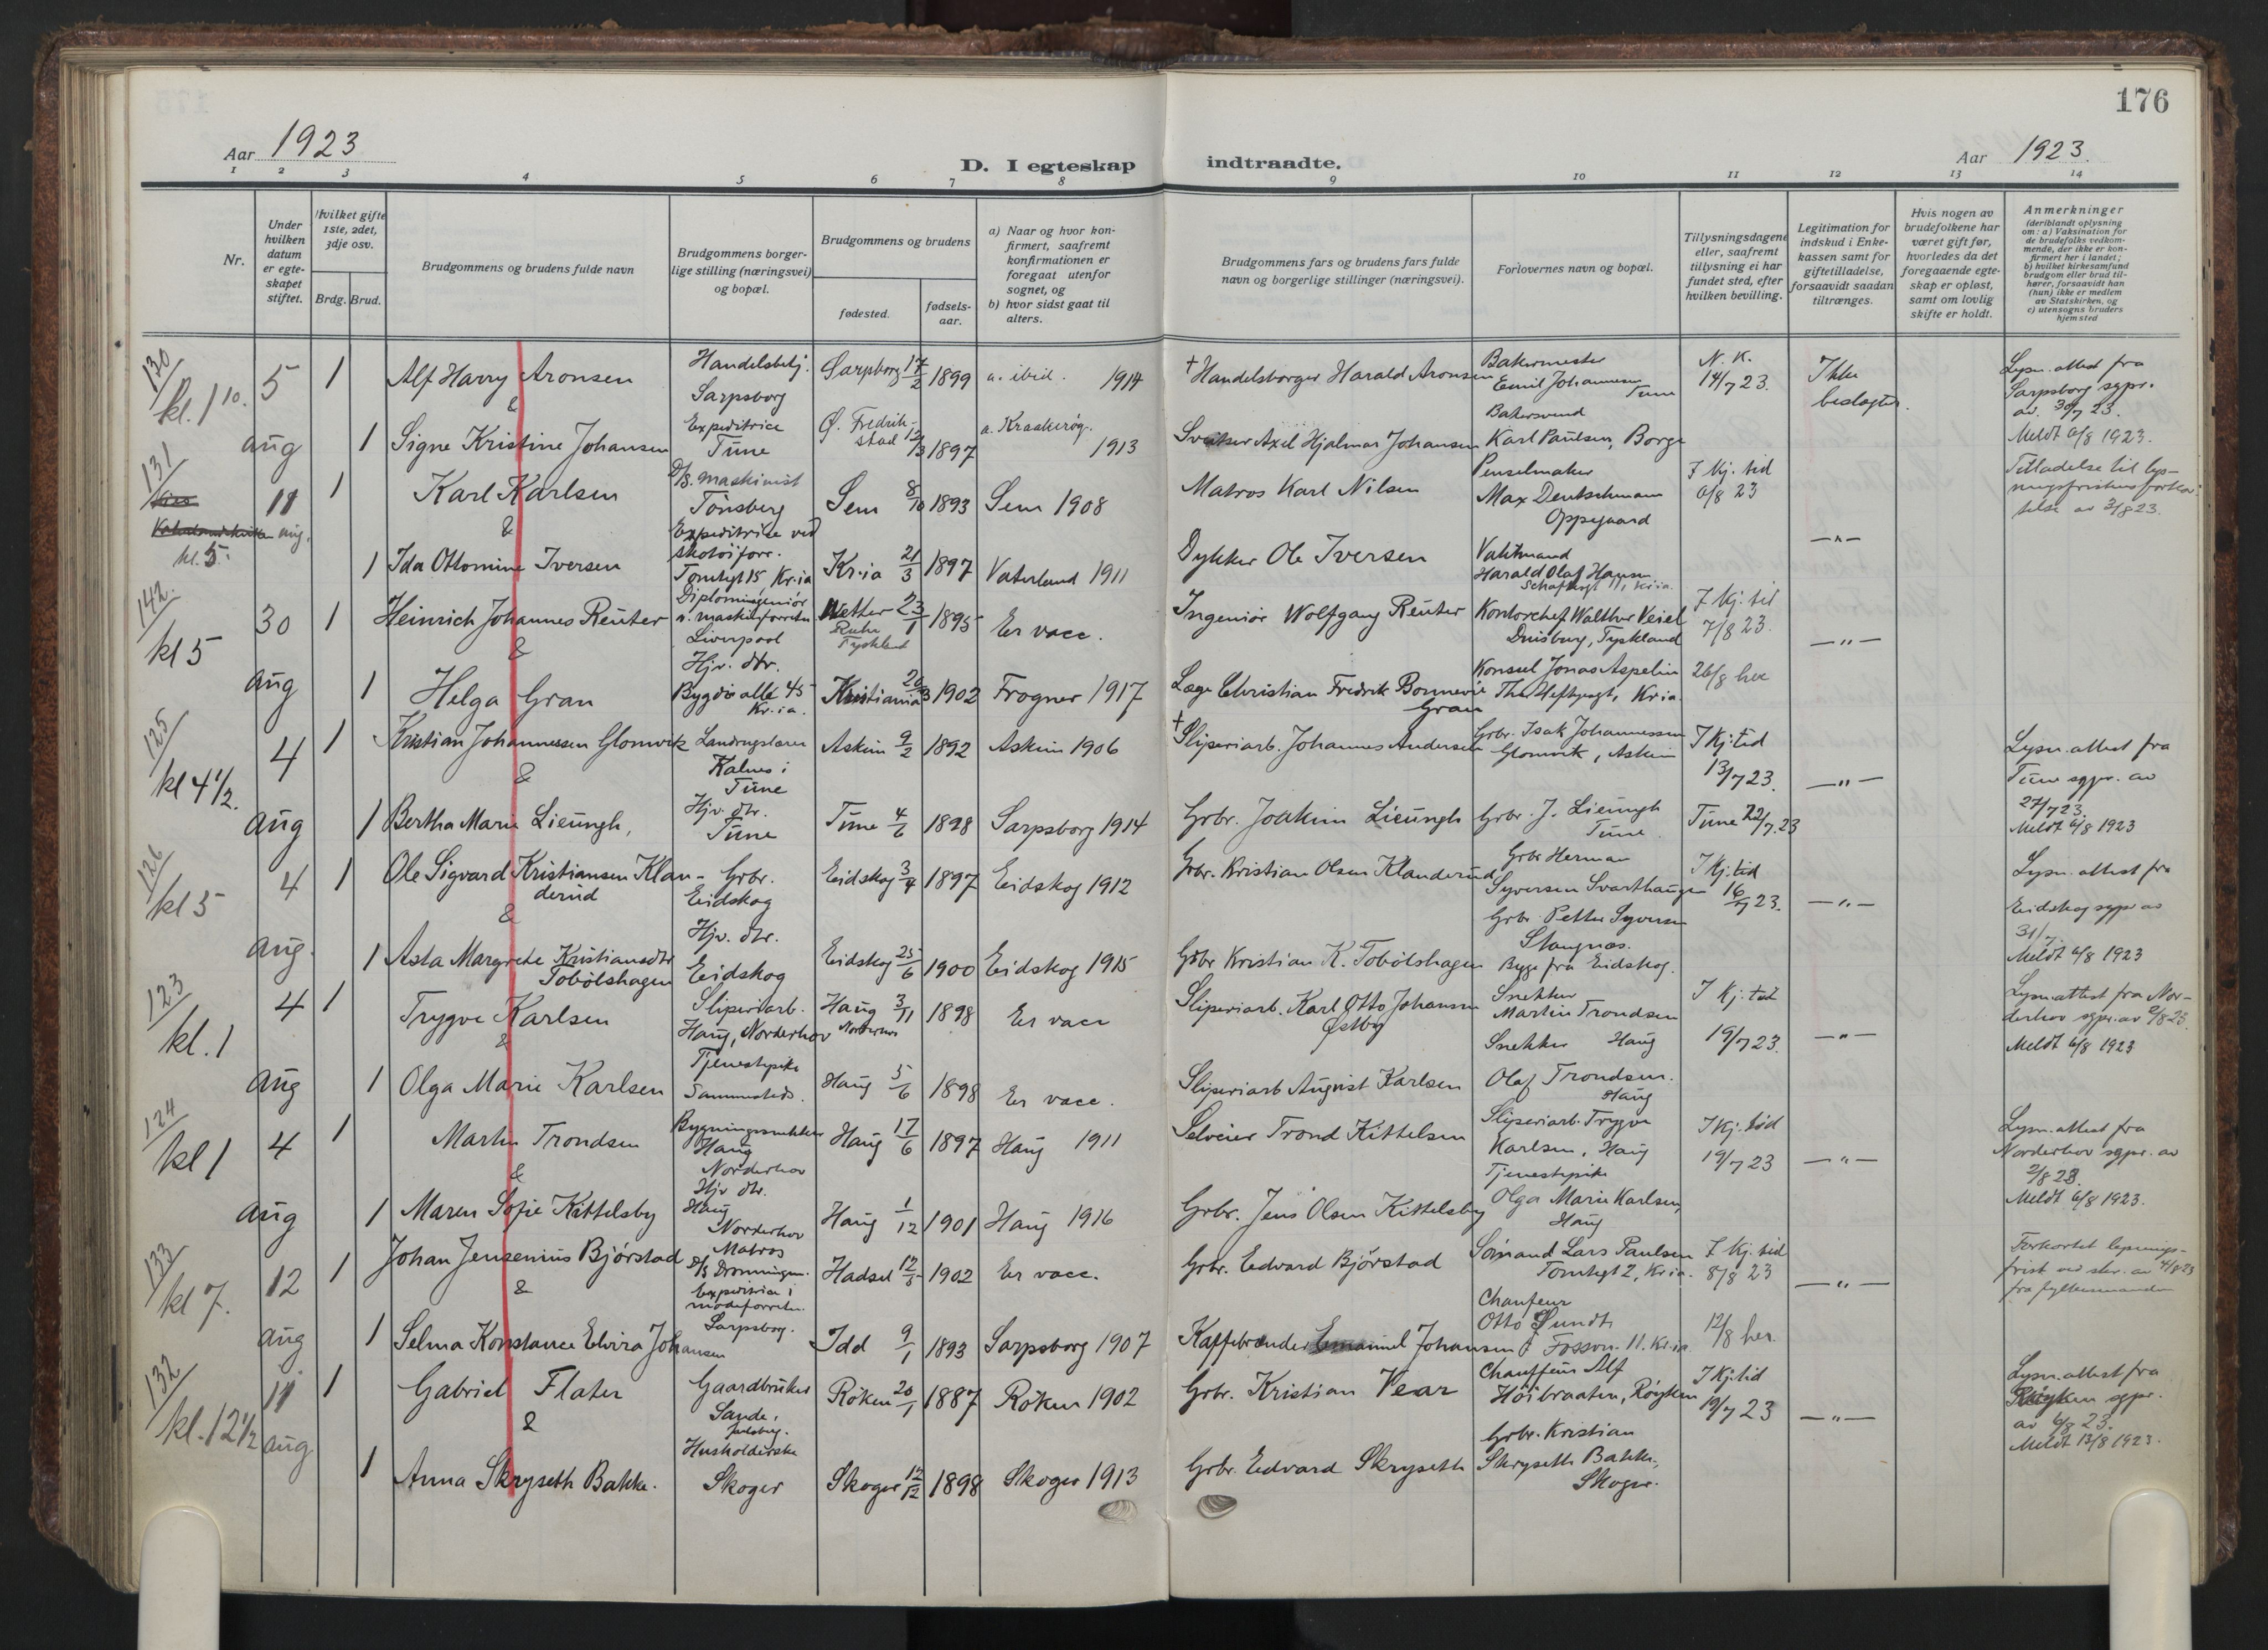 176
Aar 1923
D. I egteskap indtraadte.
Aar 1923.
1 2 3 4 5 6 7 8 9 10 11 12 13 14
Nr.
Under hvilken datum er egteskapet stiftet.
Hvilket gifte 1ste, 2det, 3dje osv.
Brdg. Brud.
Brudgommens og brudens fulde navn
Brudgommens borgerlige stilling (næringsvei) og bopæl.
Brudgommens og brudens
fødested.
fødselsaar.
a) Naar og hvor konfirmert, saafremt konfirmationen er foregaat utenfor sognet, og
b) hvor sidst gaat til alters.
Brudgommens fars og brudens fars fulde navn og borgerlige stillinger (næringsvei).
Forlovernes navn og bopæl.
Tillysningsdagene eller, saafremt tillysning ei har fundet sted, efter hvilken bevilling.
Legitimation for indskud i Enkekassen samt for giftetilladelse, forsaavidt saadan tiltrænges.
Hvis nogen av brudefolkene har været gift før, hvorledes da det foregaaende egteskap er opløst, samt om lovlig skifte er holdt.
Anmerkninger
(deriblandt oplysning om: a) Vaksination for de brudefolks vedkommende, der ikke er konfirmert her i landet; b) hvilket kirkesamfund brudgom eller brud tilhører, forsaavidt han (hun) ikke er medlem av Statskirken, og c) utensogns bruders hjemsted
130 kl. 1 10. 5 aug
1 Alf Harry Aronsen Handelsbetj. Sarpsborg Sarpsborg 17/2 1899 a. ibid. 1914 † Handelsborger Harald Aronsen Bakermester Emil Johannesen Tune N. K. 14/7 23. Ikke beslægtet. Lysn. attest fra Sarpsborg sgpr. av. 30/7 23. Meldt 6/8 1923.
&
1 Signe Kristine Johansen Expeditrice Tune Ø. Fredrikstad 1897 a. Kraakerøy. 1913 Axel Hjalmar Johansen Bakersvend Karl Paulsen, Borge
131 kl. 5. 11 aug.
1 Karl Karlsen D/S. maskinist Tønsberg Sem 8/10 1893 Sem 1908 Matros Karl Nilsen Penselmaker Max Deutschmann Oppegaard I kj. tid 6/8 23 —"— Tilladelse til lysningsfristens av 3/8 23.
&
1 Ida Ottomine Iversen Expeditrice ved skotøiforr. Tomtegt 15 Kr.ia Kr.ia 21/3 1897 Vaterland 1911 Dykker Ole Iversen Vaktmand Harald Olaf Hansen 11, Kr.ia
142. kl 5 30 aug
1 Heinrich Johannes Reuter Diplomingeniør v. maskinforretn. Liverpool Wetter Ruhr Tyskland 23/1 1895 Er vacc. Ingeniør Wolfgang Reuter Kontorchef Walther Veiel Duisburg, Tyskland I kj. tid 7/8 23. —"—
&
1 Helga Gran Hjv. dtr. Bygdø allé 45 Kr.ia. Kristiania 1902 Frogner 1917 Læge Christian Fredrik Bonnevie Gran Konsul Jonas Aspelin Th. Heftyesgt, Kr.ia. 26/8 her
125 kl 4 1/2. 4 aug
1 Kristian Johannessen Glomvik Landbrugslærer Kalnes i Tune Askim 9/2 1892 Askim 1906 † Sliperiarb. Johannes Andersen Grbr. Isak Johannessen Glomvik, Askim I kj. tid 13/7 23. —"— Lysn. attest fra Tune sgpr. av 27/7 23. Meldt 6/8 1923
&
1 Bertha Marie Lieungh, Hjv. dtr. Tune Tune 4/6 1898 Sarpsborg 1914 Grbr. Joakim Lieungh Grbr. J. Lieungh Tune. Tune 22/7 23
126 kl 5 4 aug.
1 Ole Sigvard Kristiansen Klanderud Grbr. Eidskog Eidskog 3/4 1897 Eidskog 1912 Grbr. Kristian Olsen Klanderud Grbr Herman Syversen Svarthaugen I kj. tid 16/7 23. —"— Lysn. attest fra Eidskog sgpr av 31/7. Meldt 6/8 1923
&
1 Asta Margrete Kristiansdtr Tobølshagen Hjv. dtr. Eidskog Eidskog 25/6 1900 Eidskog 1915 Grbr Kristian K. Tobølshagen Grbr. Petter Syversen Stangnæs. Begge fra Eidskog.
123 kl. 1 4 aug
1 Trygve Karlsen Sliperiarb. Haug, Norderhov Haug Norderhov 3/11 1898 Er vacc Sliperiarb. Karl Otto Johansen Østby Snekker Martin Trondsen I kj. tid 19/7 23. —"— Lysn. attest fra Norderhov sgpr. av 2/8 23. Meldt 6/8 1923
&
1 Olga Marie Karlsen Tjenestepike Sammesteds. Haug 5/6 1898 Er vacc. Sliperiarb August Karlsen Snekker Haug Olaf Trondsen. Haug
124 kl 1 4 aug
1 Martin Trondsen Bygningssnekker Haug Norderhov Haug 17/6 1897 Haug 1911 Selveier Trond Kittelsen Sliperiarb. Trygve Karlsen, Haug I kj. tid 19/7 23 —"— Lysn. attest fra Norderhov sgpr. av 2/8 23. Meldt 6/8 1923.
&
1 Maren Sofie Kittelsby Hjv dtr. Haug Norderhov Haug 1/12 1901 Haug 1916 Grbr. Jens Olsen Kittelsby Tjenestepike Olga Marie Karlsen, Haug
133 kl 7. 12 aug
1 Johan Jensenius Bjørstad Matros D/S Dronningen. Hadsel 12/5 1902 Er vacc. Grbr. Edvard Bjørstad Sømand Lars Paulsen Tomtegt 2, Kr.ia. I kj. tid 8/8 23 —"— Forkortet lysningsfrist ved skr. av 4/8 23 fra fylkesmanden
&
1 Selma Konstance Elvira Johansen Expeditrice i modeforretn. Sarpsborg. Idd 9/1 1893 Sarpsborg 1907 Kaffebrænder Emanuel Johansen Chaufeur Otto Sundt 11. Kr.ia 12/8 her.
132 kl. 12 1/2 11 aug
1 Gabriel Flater Gaardbruker Sande, Jarlsberg. Røken 20/1 1887 Røken 1902 Grbr. Kristian Vear Chauffeur Alf Høibraaten, Røyken I kj. tid 19/7 23 —"— Lysn. attest fra Røyken sgpr. av 6/8 23. Meldt 13/8 1923.
&
1 Anna Skryseth Bakke. Husholderske Skoger Skoger 12/12 1898 Skoger 1913 Grbr. Edvard Skryseth Grbr. Kristian Skryseth Bakke, Skoger.